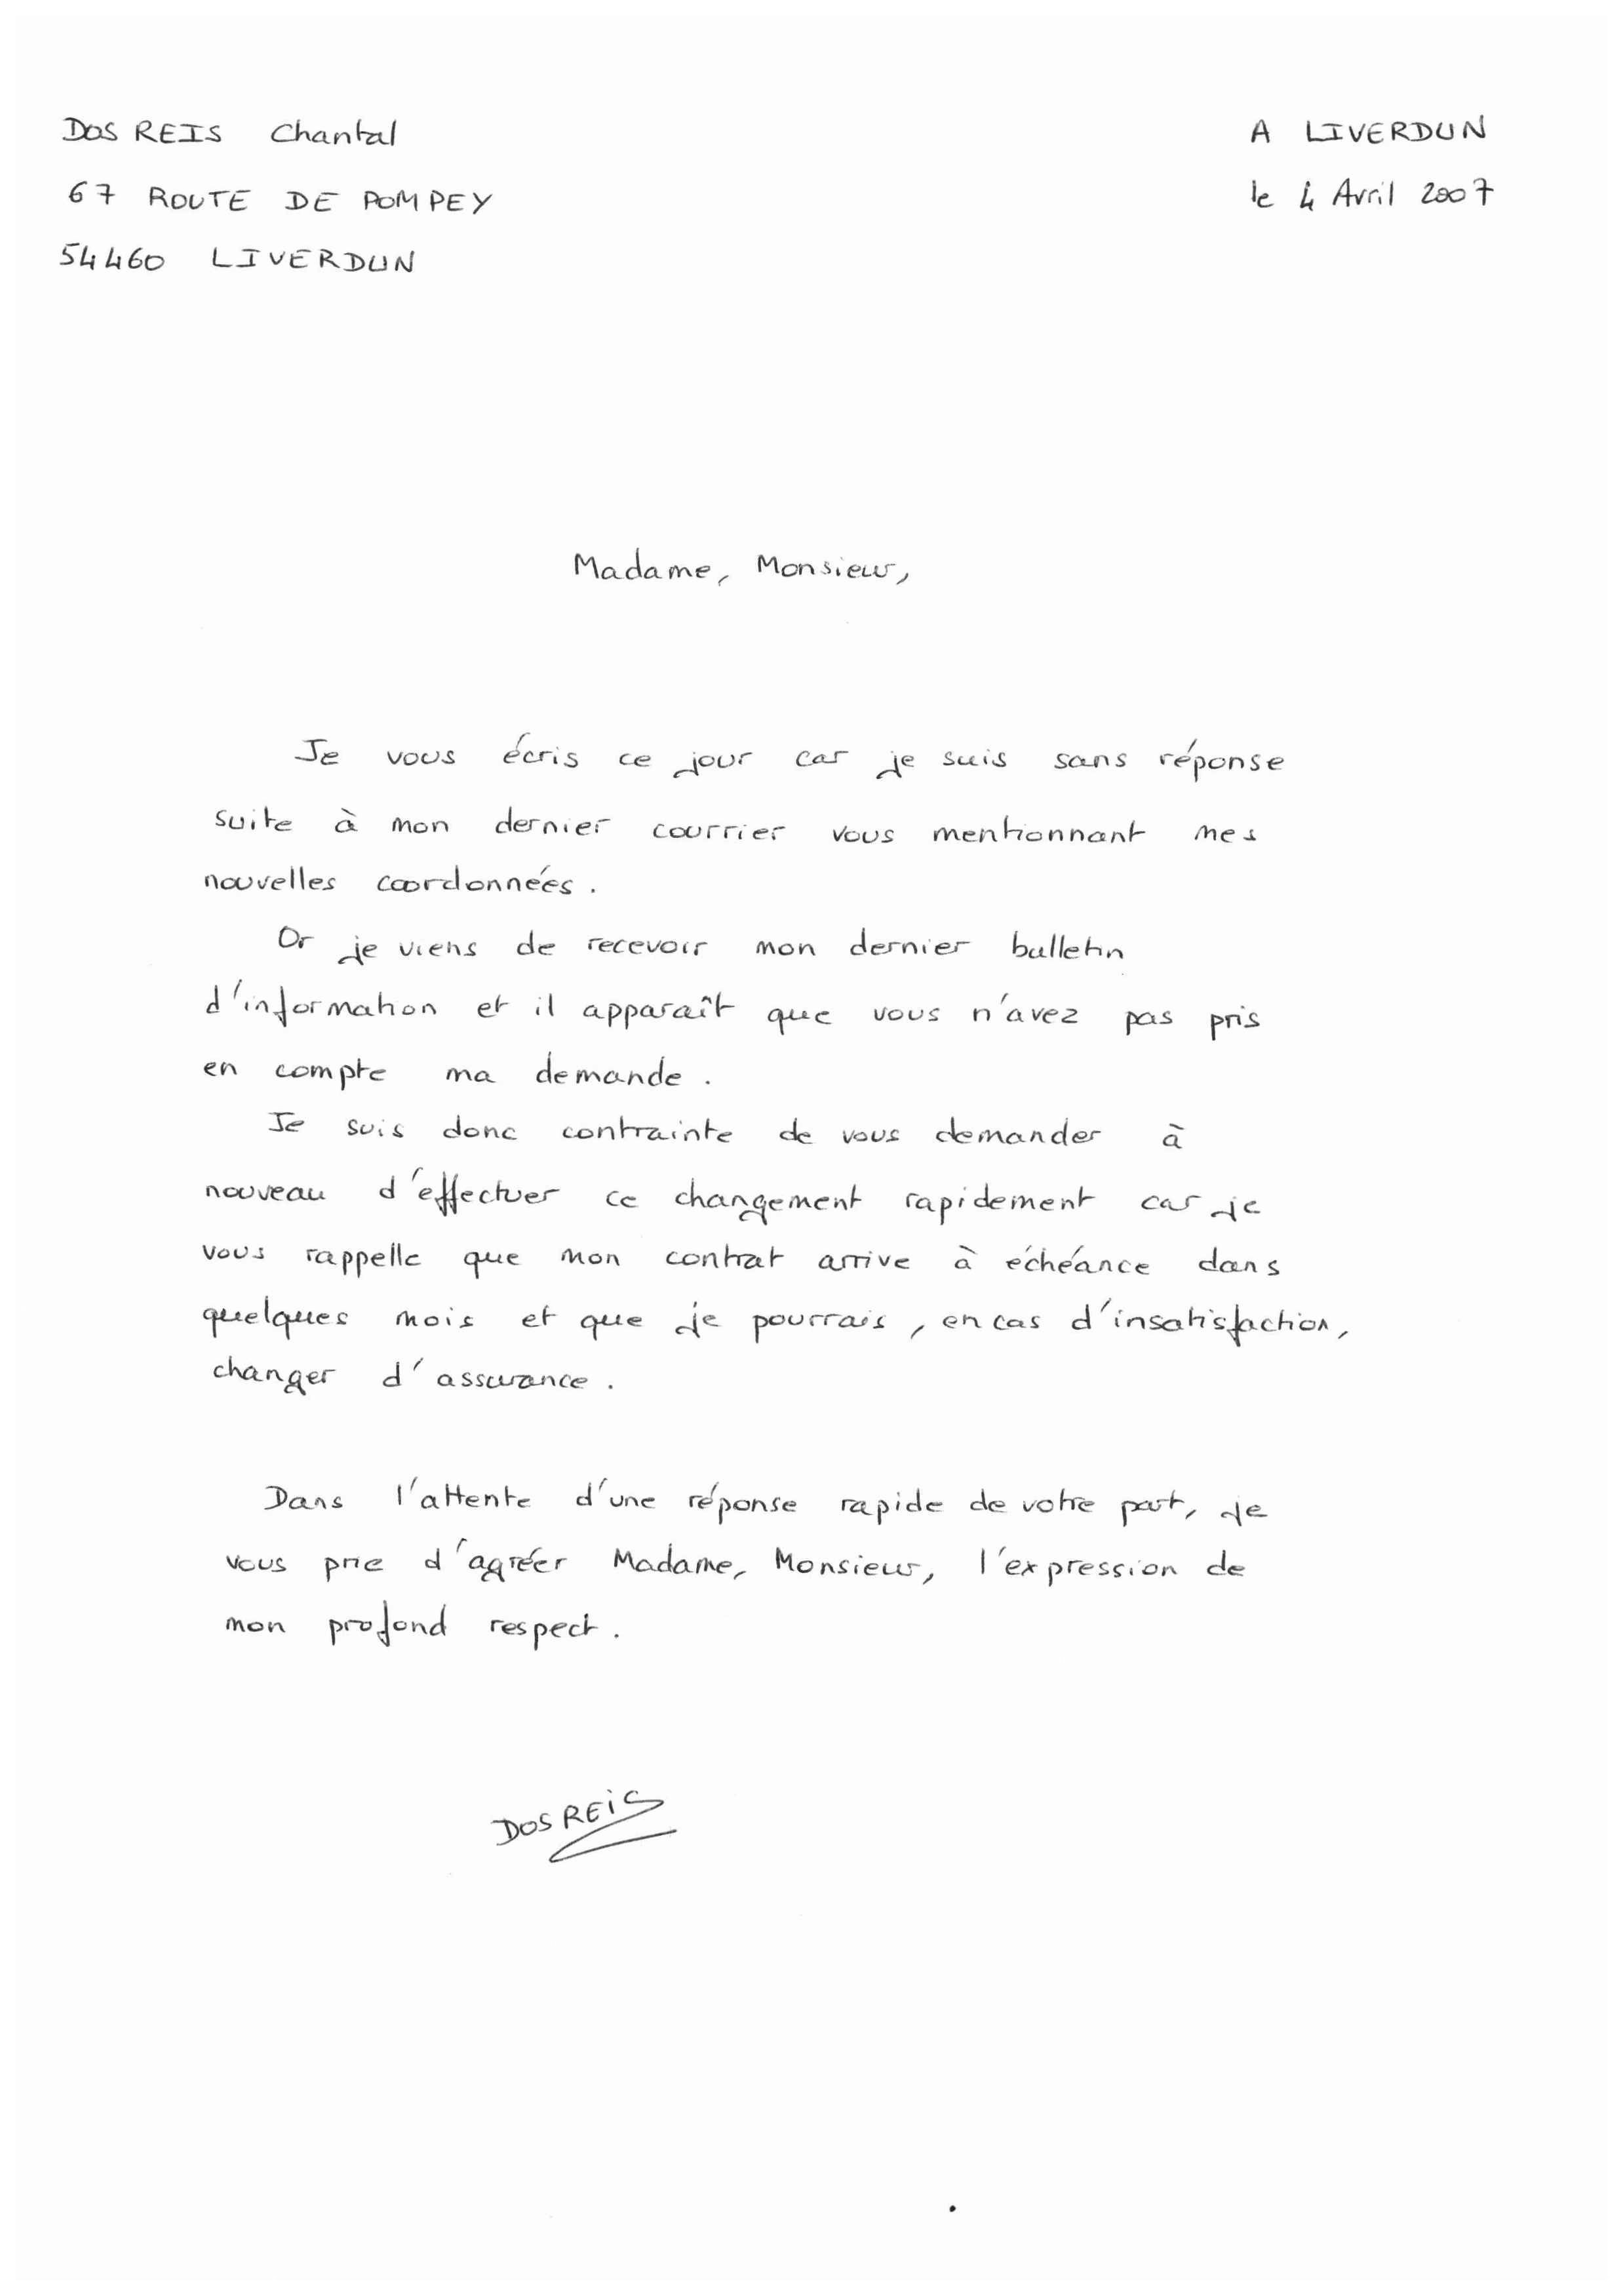 DOS REIS Chantal
A LIVERDUN
67 ROUTE DE POMPEY
le 4 Avril 2007
54460 LIVERDUN
Madame, Monsieur,
Je vous écris ce jour car je suis sans réponse
suite à mon dernier courrier vous mentionnant mes
nouvelles coordonnées.
Or je viens de recevoir mon dernier bulletin
d'information et il apparaît que vous n'avez pas pris
en compte ma demande.
Je suis donc contrainte de vous demander à
nouveau d'effectuer ce changement rapidement car je
vous rappelle que mon contrat arrive à échéance dans
quelques mois et que je pourrais, en cas d'insatisfaction,
changer d'assurance.
Dans l'attente d'une réponse rapide de votre part, je
vous prie d'agréer Madame, Monsieur, l'expression de
mon profond respect.
DOS REiS